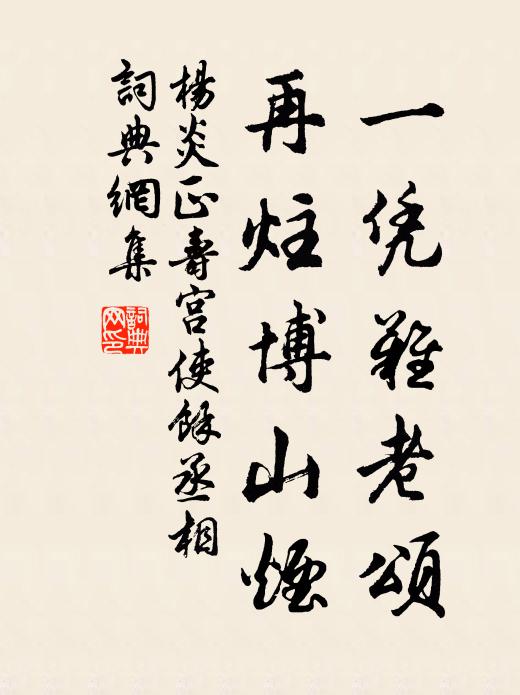 一凭難老頌
再炷博山煙
楊炎正壽宮使餘丞相
詞典網集
詞典网印